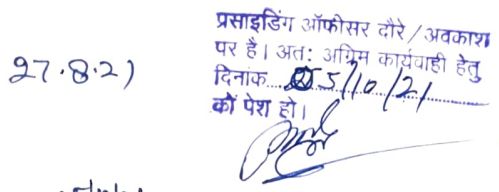 27.8.21
प्रसाइडिंग ऑफीसर दौरे / अवकाश
पर है। अतः अग्रिम कार्यवाही हेतु
दिनांक 5/10/21
को पेश हो।